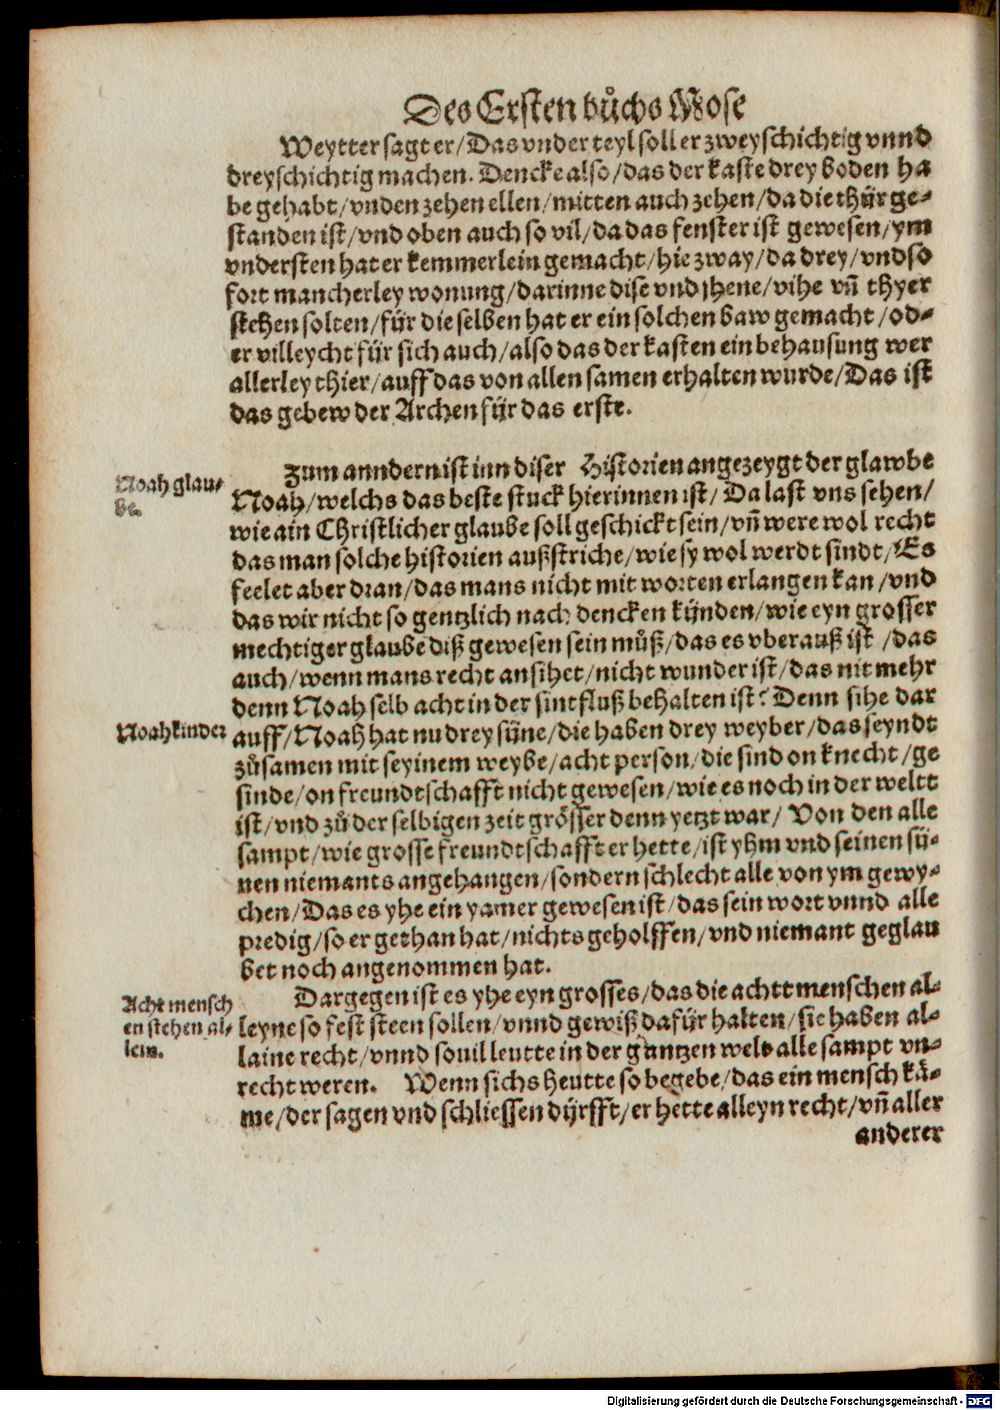 Des Ersten bůchs Mose
Weytter sagt er/Das vnder teyl soll er zweyschichtig vnnd
dreyschichtig machen. Dencke also/das der kaste drey boden ha
be gehabt/vnden zehen ellen/mitten auch zehen/da die thür ge-
standen ist/vnd oben auch so vil/da das fenster ist gewesen/ym
vndersten hat er kemmerlein gemacht/hie zway/da drey/vnd so
fort mancherley wonung/darinne dise vnd jhene/vihe vñ thyer
stehen solten/für die selben hat er ein solchen baw gemacht/od-
er villeycht für sich auch/also das der kasten ein behausung wer
allerley thier/auff das von allen samen erhalten wurde/Das ist
das gebew der Archen für das erste.
Zum anndern ist inn diser Historien angezeygt der glawbe
Noah glau-
be.
Noah/welchs das beste stuck hierinnen ist/Da last vns sehen/
wie ain Christlicher glaube soll geschickt sein/vñ were wol recht
das man solche historien außstriche/wie sy wol werdt sindt/Es
feelet aber dran/das mans nicht mit worten erlangen kan/vnd
das wir nicht so gentzlich nach dencken kynden/wie eyn grosser
mechtiger glaube diß gewesen sein můß/das es vberauß ist/das
auch/wenn mans recht ansihet/nicht wunder ist/das nit mehr
denn Noah selb acht in der sintfluß behalten ist? Denn sihe dar
Noah kinder
auff/Noah hat nu drey süne/die haben drey weyber/das seyndt
zůsamen mit seyinem weybe/acht person/die sind on knecht/ge
sinde/on freundtschafft nicht gewesen/wie es noch in der weltt
ist/vnd zů der selbigen zeit grösser denn yetzt war/Von den alle
sampt/wie grosse freundtschafft er hette/ist yhm vnd seinen sü-
nen niemants angehangen/sondern schlecht alle von ym gewy-
chen/Das es yhe ein yamer gewesen ist/das sein wort vnnd alle
predig/so er gethan hat/nichts geholffen/vnd niemant geglau
bet noch angenommen hat.
Acht mensch
en stehen al-
lein.
Dargegen ist es yhe eyn grosses/das die achtt menschen al-
leyne so fest steen sollen/vnnd gewiß dafür halten/sie haben al-
laine recht/vnnd souil leutte in der gantzen welt alle sampt vn-
recht weren. Wenn sichs heutte so begebe/das ein mensch kä-
me/der sagen vnd schliessen dyrfft/er hette alleyn recht/vñ aller
anderer
Digitalisierung gefördert durch die Deutsche Forschungsgemeinschaft - DFG